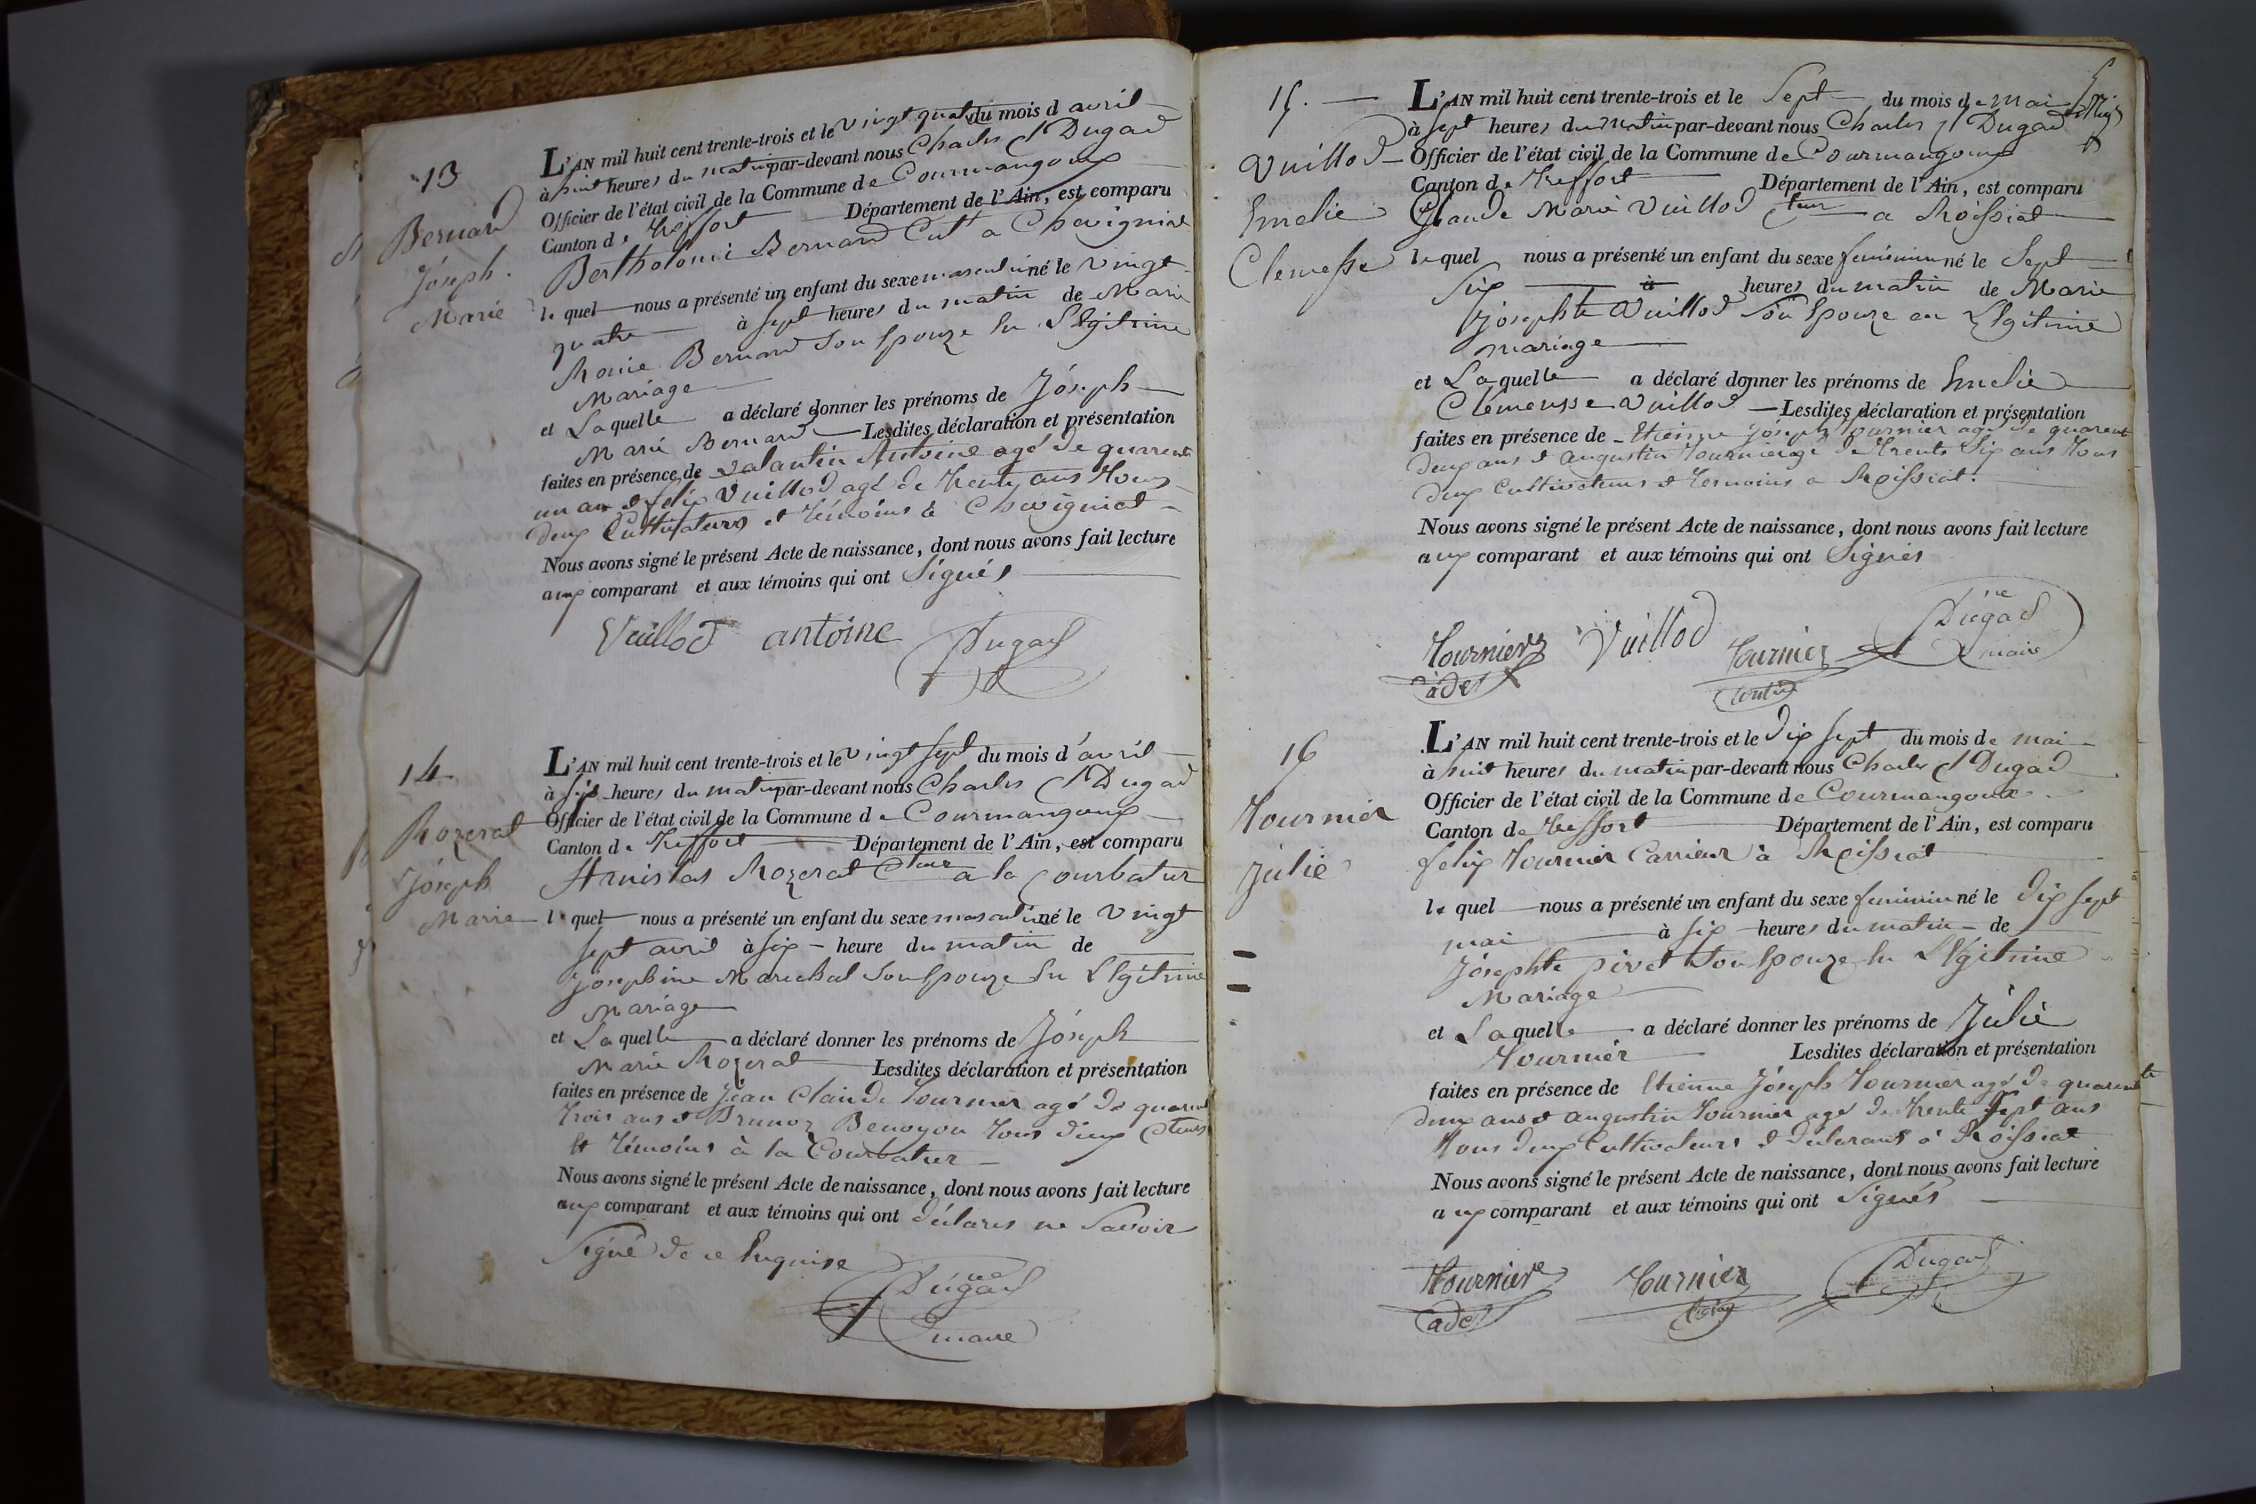 13
Bernard
Joseph
Marie
L'AN mil huit cent trente-trois et le vingt quatre du mois d avril
à huit heures du matin par-devant nous Charles Dugad
Officier de l'état civil de la Commune de Courmangoux
Canton de Treffort Département de l'Ain, est comparu
Bertholomé Bernard Cult a Chevigniat
lequel nous a présenté un enfant du sexe masculin né le vingt
quatre à sept heures du matin de Marie
Bernard Son Epouze En Légitime
Mariage
et Laquelle a déclaré donner les prénoms de Joseph
Marie Bernard Lesdites déclaration et présentation
faites en présence de Valantin Antoine agé de quarente
un an et felix Vuillod agé de Trente ans Tous
deux Cultivateurs et Témoins à Chevigniat
Nous avons signé le présent Acte de naissance, dont nous avons fait lecture
aux comparant et aux témoins qui ont Signés
Vuillod antoine Dugad
14
Rozerat
Joseph
Marie
L'AN mil huit cent trente-trois et le vingt sept du mois d'avril
à heures du matin par-devant nous Charles Dugad
Officier de l'état civil de la Commune de Courmangoux
Canton de Treffort Département de l'Ain, est comparu
Stanislas Rozerat Cteur a la Courbatur
lequel nous a présenté un enfant du sexe masculin né le vingt
sept avril à six heure du matin de
Josephine Marechal Son Epouze En Légitime
Mariage
et Laquelle a déclaré donner les prénoms de Joseph
Marie Rozerat Lesdites déclaration et présentation
faites en présence de Jean Claude Tournier agé de quarente
trois ans et Benoyon Tous deux Cteurs
Et Témoins à la Courbatier
Nous avons signé le présent Acte de naissance, dont nous avons fait lecture
aux comparant et aux témoins qui ont déclarés ne Savoir
Signé de ce Enquise
Dugad
maire
15.
Vuillod
Emelie
Clemesse
L'AN mil huit cent trente-trois et le Sept du mois de mai
à sept heures du matin par-devant nous Charles Dugad
Officier de l'état civil de la Commune de Courmangoux
Canton de Treffort Département de l'Ain, est comparu
Claude Marie Vuillod Cteur a Roissiat
lequel nous a présenté un enfant du sexe feminin né le Sept
Six à heures du matin de Marie
Josephte Vuillod Son Epouze en Légitime
mariage
et Laquelle a déclaré donner les prénoms de Emelie
Clemensse Vuillod Lesdites déclaration et présentation
faites en présence de Etienne Joseph Tournier agé de quarente
deux ans et augustin Tournier agé de Trente Six ans Tous
deux Cultivateurs et Temoins a Roissiat.
Nous avons signé le présent Acte de naissance, dont nous avons fait lecture
aux comparant et aux témoins qui ont Signés
Tournier Vuillod Tournier Dugad
maire
16
Tournier
Julie
L'AN mil huit cent trente-trois et le dix sept du mois de mai
à huit heures du matin par-devant nous Charles Dugad
Officier de l'état civil de la Commune de Courmangoux
Canton de Treffort Département de l'Ain, est comparu
felix Tournier Carrieur à Roissiat
lequel nous a présenté un enfant du sexe feminin né le dix sept
mai à six heures du matin de
Josephte pirat Son Epouze En Légitime
Mariage
et Laquelle a déclaré donner les prénoms de Julie
Tournier Lesdites déclaration et présentation
faites en présence de Etienne Joseph Tournier agé de quarente
deux ans et augustin Tournier agé de trente sept ans
Tous deux Cultivateurs et déclarant à Roissiat
Nous avons signé le présent Acte de naissance, dont nous avons fait lecture
aux comparant et aux témoins qui ont Signés
Tournier Tournier Dugad